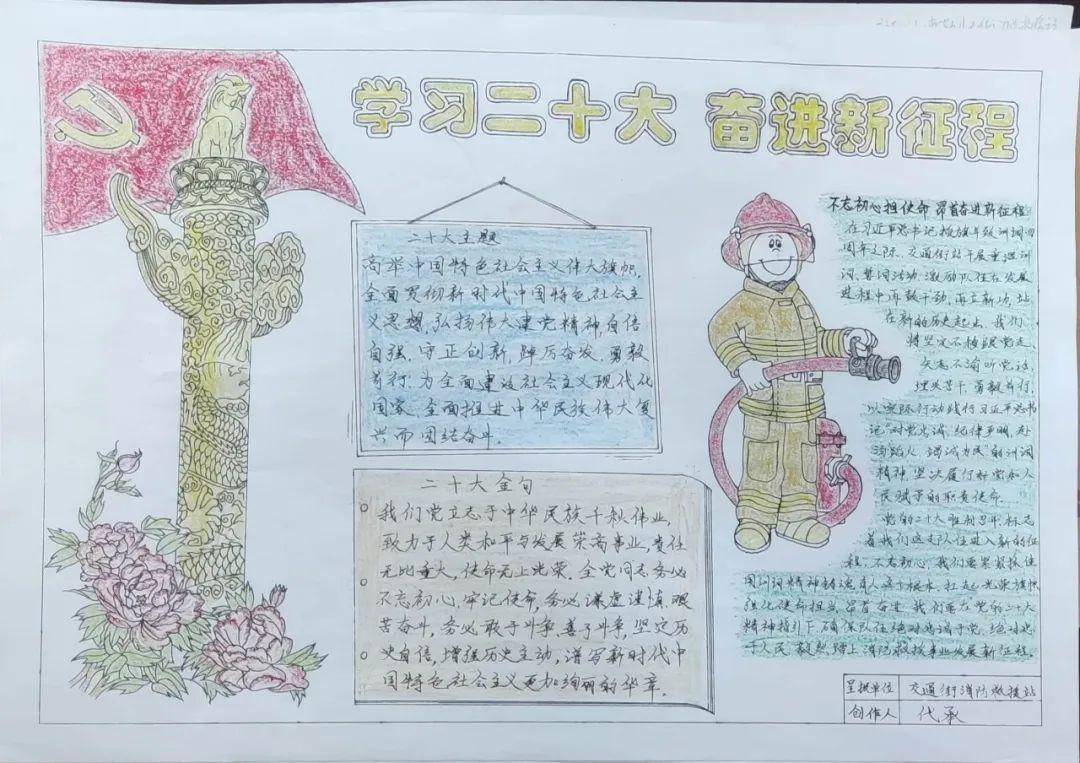 学习二十大 奋进新征程
二十大主题
高举中国特色社会主义伟大旗帜,
全面贯彻新时代中国特色社会主
义思想,弘扬伟大建党精神,自信
自强、守正创新,踔厉奋发、勇毅
前行,为全面建设社会主义现代化
国家、全面推进中华民族伟大复
兴而团结奋斗.
二十大金句
我们党立志于中华民族千秋伟业,
致力于人类和平与发展崇高事业,责任
无比重大,使命无上光荣.全党同志务必
不忘初心、牢记使命,务必谦虚谨慎、艰
苦奋斗,务必敢于斗争、善于斗争,坚定历
史自信,增强历史主动,谱写新时代中
国特色社会主义更加绚丽的华章.
不忘初心担使命 昂首奋进新征程
在习近平总书记授旗致训词四
周年之际、交通街站开展重温训
词、誓词活动,激励队伍在发展
进程中再鼓干劲,再立新功,站
在新的历史起点,我们
将坚定不移跟党走
矢志不渝听党话,
埋头苦干、勇毅前行,
以实际行动践行习近平总书
记"对党忠诚、纪律严明、赴
汤蹈火、竭诚为民"的训词
精神,坚决履行好党和人
民赋予的职责使命.
党的二十大胜利召开,标志
着我们这支队伍进入新的征
程,不忘初心,我们要紧紧抓住
强化使命担当,昂首奋进,我们要在党的二十大
精神指引下,确保队伍绝对忠诚于党、绝对忠
呈报单位 交通街消防救援站
创作人 代承